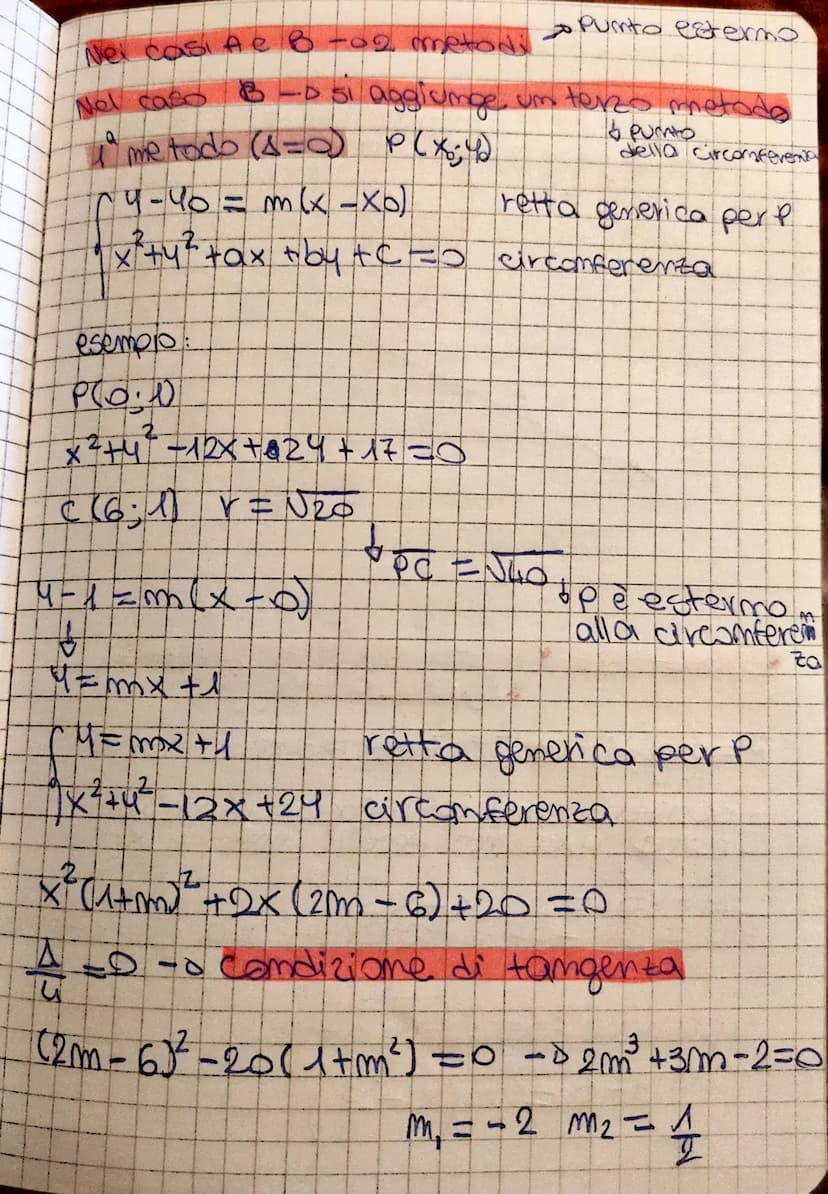 Nei casi A e B → 2 metodi → punto esterno
Nel caso B → si aggiunge un terzo metodo
↓ punto
della circonferenza
1ª metodo (Δ=0) P(x₀;y₀)
y-y₀ = m(x-x₀) retta generica per P
x²+y²+ax+by+c=0 circonferenza
esempio:
P(0;1)
x²+y²-12x+2y+17=0
C(6;1) r=√20
↓ PC = √40
y-1=m(x-0) ↓ P è esterno
alla circonferen
za
↓
y=mx+1
y=mx+1 retta generica per P
x²+y²-12x+2y circonferenza
x²(1+m)²+2x(2m-6)+20=0
Δ/4=0 → condizione di tangenza
(2m-6)²-20(1+m²)=0 → 2m³+3m-2=0
m₁=-2 m₂=1/2